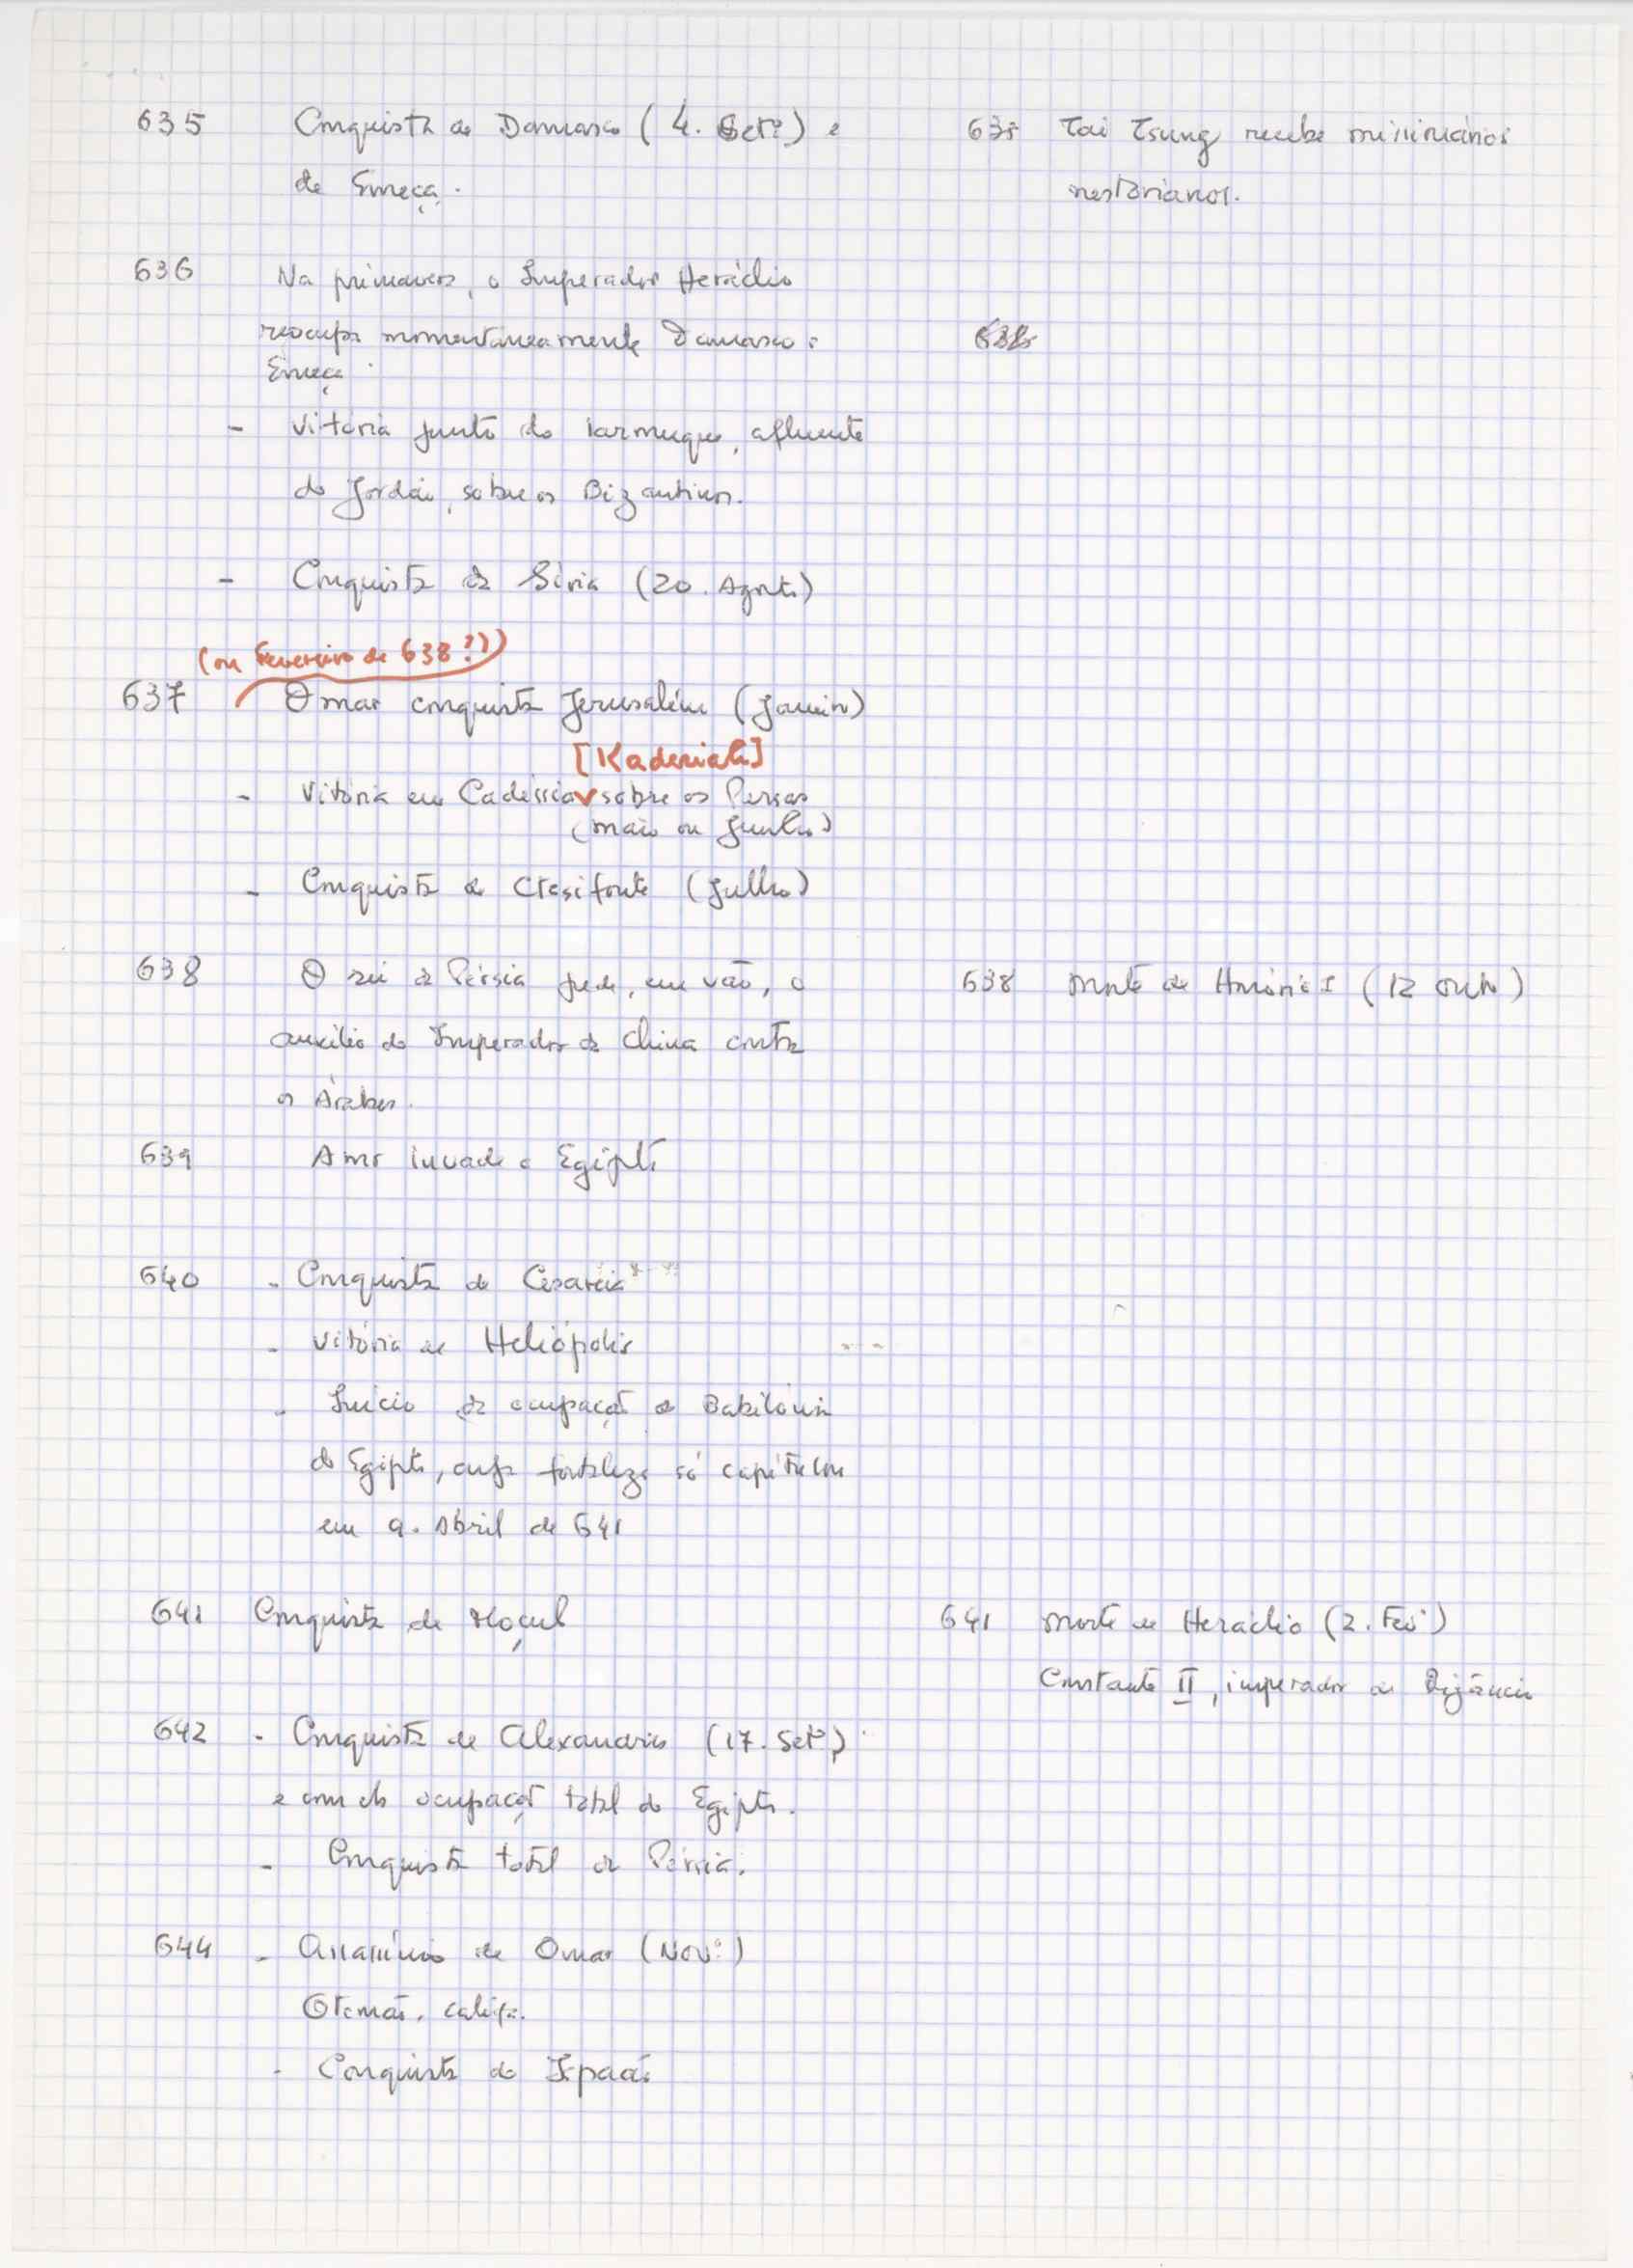 635 Conquista de Damasco (4. Setº.) e
de Emeça.
635 Tai Tsung recebe missionários
nestorianos.
636 Na primavera, o Imperador Heráclio
reocupa momentaneamente Damasco e
Emeça.
- Vitória junto do Iarmuque, afluente
do Jordão, sobre os Bizantinos.
- Conquista da Síria (20. Agosto)
(ou Fevereiro de 638?))
637 Omar conquista Jerusalém (Janeiro)
[Kadesiah]
- Vitória em Cadéssia sobre os Persas
(maio ou Junho)
- Conquista de Ctesifonte (Julho)
638 O rei da Pérsia pede, em vão, o
auxílio do Imperador da China contra
os Árabes.
638 Morte de Honório I (12 Outº)
639 Amr invade o Egipto
640 - Conquista de Cesareia
- Vitória de Heliópolis
- Início da ocupação de Babilónia
do Egipto, cuja fortaleza só capitulou
em 9. Abril de 641
641 Conquista de Moçul
641 Morte de Heráclio (2. Fevº)
Constante II, imperador de Bizâncio
642 - Conquista de Alexandria (17. Setº)
e com ela ocupação total do Egipto.
- Conquista total da Pérsia.
644 - Assassínio de Omar (Novº)
Otomão, califa.
- Conquista de Ispaão